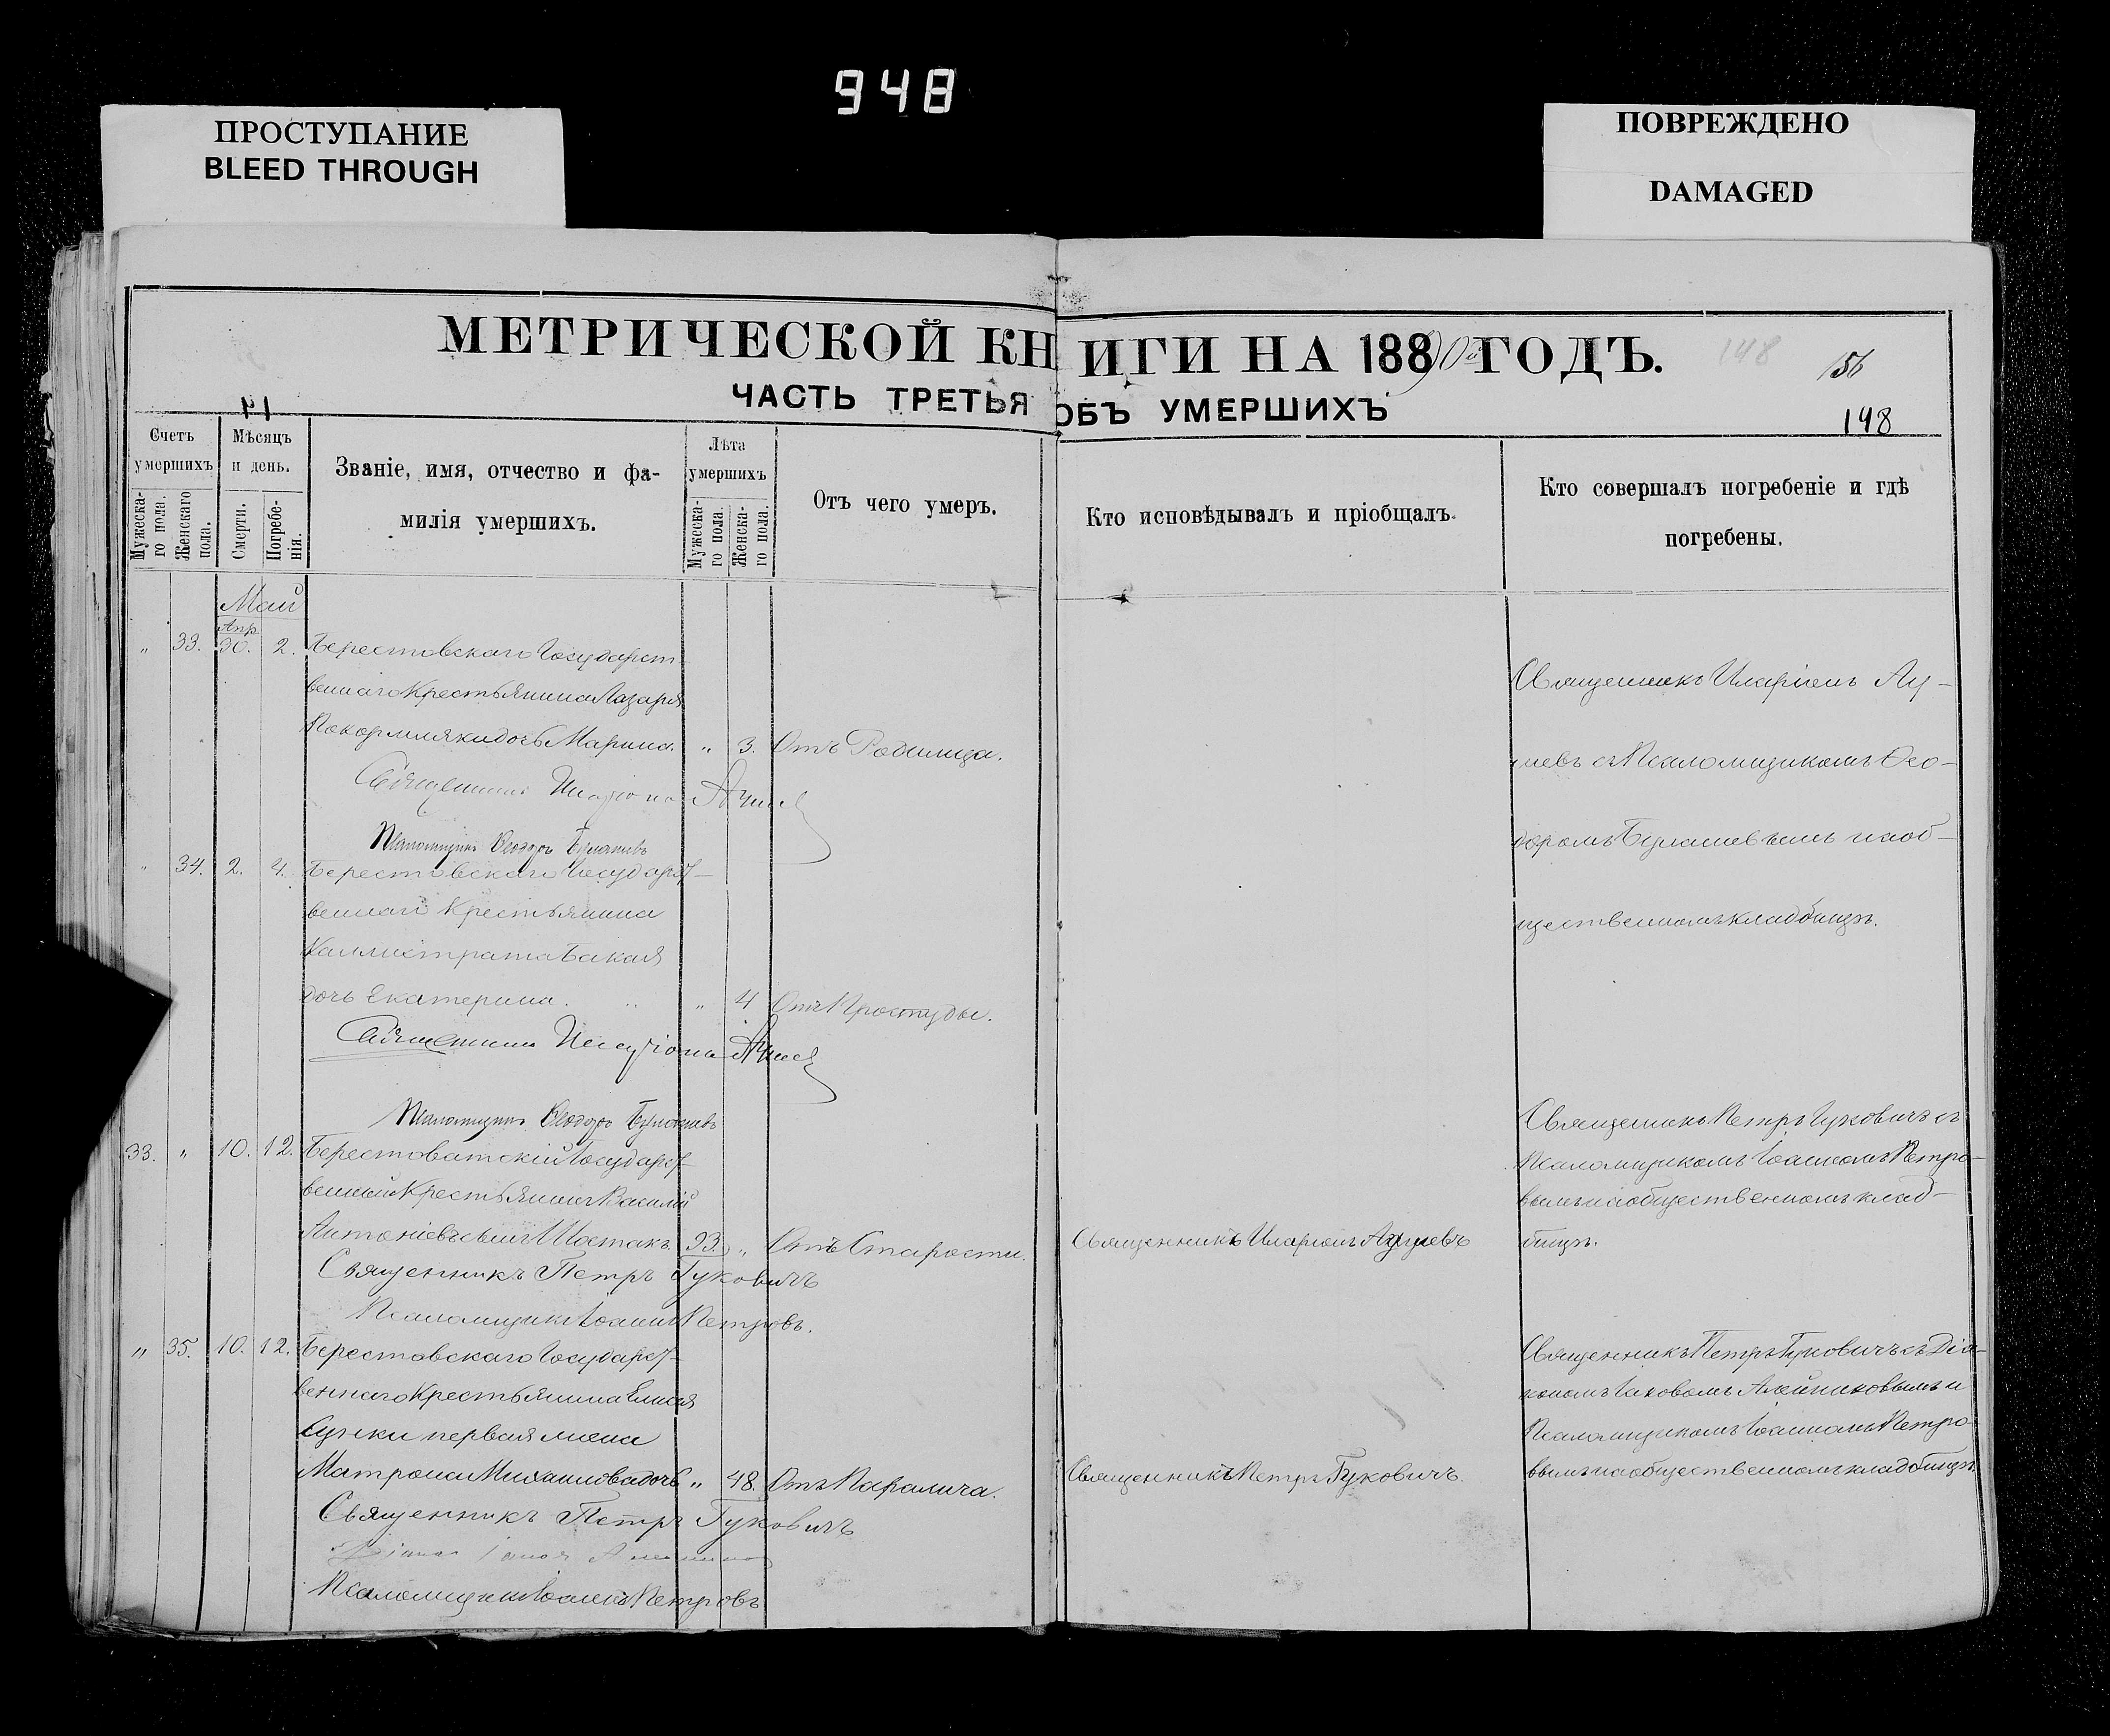 948
ПРОСТУПАНИЕ
BLEED THROUGH
ПОВРЕЖДЕНО
DAMAGED
МЕТРИЧЕСКОЙ КНИГИ НА 18890 ГОДЪ.
148
156
ЧАСТЬ ТРЕТЬЯ ОБЪ УМЕРШИХЪ
148
Счетъ умершихъ
Мужеска-го пола.
Женскаго пола.
Мѣсяцъ и день.
Смерти.
Погребе-нія.
Званіе, имя, отчество и фа-
милія умершихъ.
Лѣта умершихъ
Мужеска-го пола.
Женска-го пола.
Отъ чего умеръ.
Кто исповѣдывалъ и пріобщалъ.
Кто совершалъ погребеніе и гдѣ
погребены.
Май
Апр
" 33. 30. 2. Берестовскаго Государст-
веннаго Крестьянина Лазаря
Покормляки дочь Марина. " 3. Отъ Родимца.
Священникъ Иларіонъ
Псаломщикъ Ѳеодоръ
Священникъ Иларіонъ
съ Псаломщикомъ Ѳео-
доромъ на об-
щественномъ кладбищѣ.
" 34. 2. 4. Берестовскаго Государст-
веннаго Крестьянина
Каллистрата Бакая
дочь Екатерина. " 4 Отъ Простуды.
Священникъ Иларіонъ
Псаломщикъ Ѳеодоръ
33. " 10. 12. Берестоватскій Государст-
венный Крестьянинъ Василій
Антоніевъ сынъ Шостакъ. 93. " Отъ Старости.
Священникъ Иларіонъ
Священникъ Петръ Гуковичъ
Псаломщикъ Іоаннъ Петровъ.
Священникъ Петръ Гуковичъ съ
Псаломщикомъ Іоанномъ Петро-
вымъ на общественномъ клад-
бищѣ.
" 35. 10. 12. Берестовскаго Государст-
веннаго Крестьянина Елисея
первая жена
Матрона Михаилова дочь " 48. Отъ Паралича.
Священникъ Петръ Гуковичъ.
Священникъ Петръ Гуковичъ
Псаломщикъ Іоаннъ Петровъ
Священникъ Петръ Гуковичъ съ Діа-
кономъ Іаковомъ Алейниковымъ и
Псаломщикомъ Іоанномъ Петро-
вымъ на общественномъ кладбищѣ.